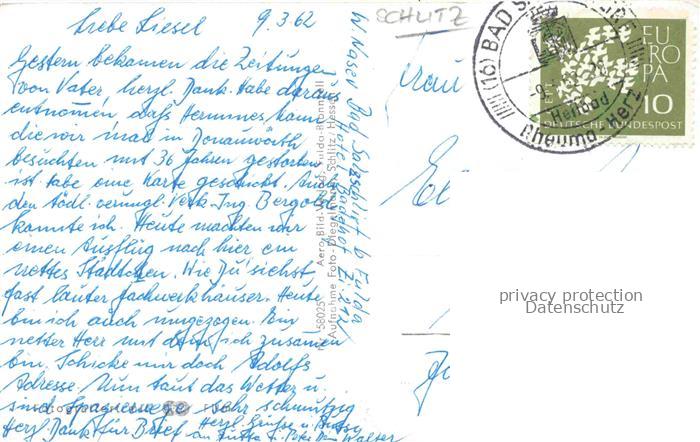 Liebe Liesel 9.3.62
Gestern bekamen die Zeitungen
von Vater herzl. Dank. Habe daraus
entnommen, daß Hemmes
die wir mal in Donauwörth
besuchten mit 36 Jahren gestorben
ist habe eine Karte geschickt. Auch
den tödl. verungl. Verk. Ing. Bergold
kannte ich. Heute machten wir
einen Ausflug nach hier ein
nettes Städtchen. Wie Du siehst
fast lauter Fachwerkhäuser. Heute
bin ich auch umgezogen. Ein
netter Herr mit dem ich zusammen
bin. Schicke mir doch Adolfs
Adresse. Nun taut das Wetter u.
sind Spazierwege sehr schmutzig
Herzl. Dank für Brief Herzl. Grüße u.
an Jutta u. Peter Dein Walter
W. Naser Bad Salzschlirf b Fulda
Hotel Badehof Zi. 212
58025 Aero-Bild-Verlag, Fulda-Bronnzell
Aufnahme Foto-Diegelmann, Schlitz/Hessen
SCHLITZ
(16) BAD
Heilbad
Rheuma Herz
EUROPA
10
DEUTSCHE BUNDESPOST
Frau
privacy protection
Datenschutz